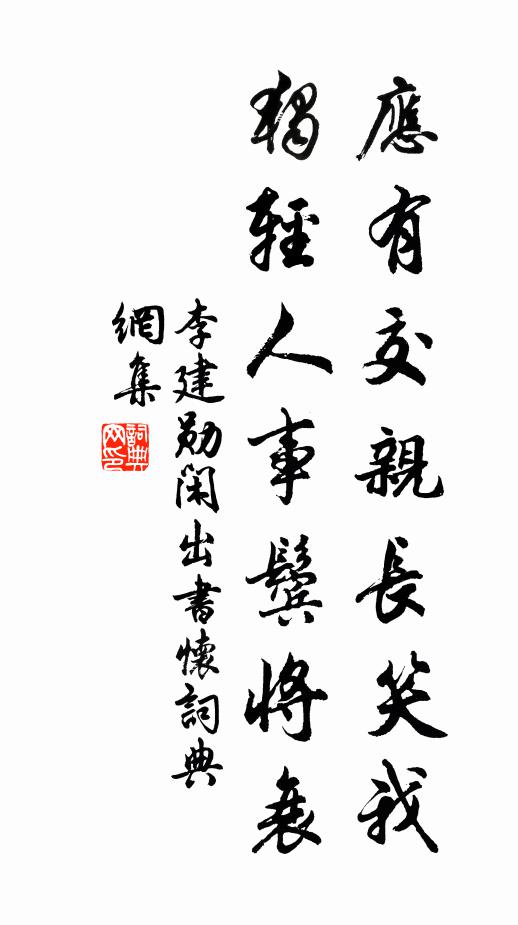 應有交親長笑我
獨輕人事鬢將衰
李建勛閑出書懷詞典
網集
詞典
网印